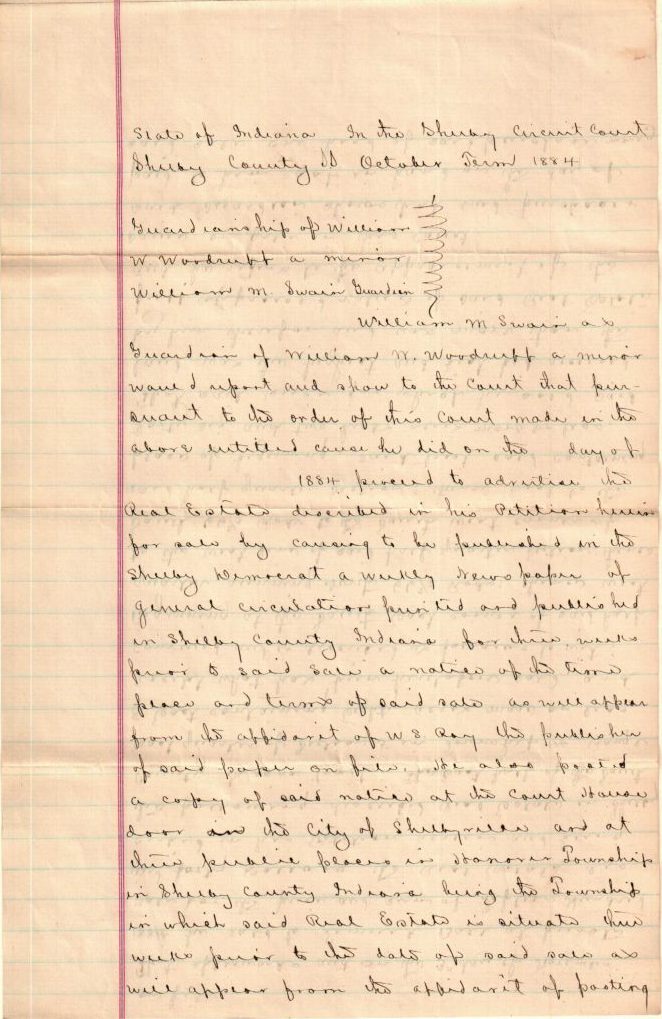 State of Indiana In the Shelby Circuit Court
Shelby County SS October Term 1884
Guardianship of William
W. Woodruff a minor
William M. Swain Guardian
William M Swain as
Guardian of William W. Woodruff a minor
would report and show to the Court that pur-
suant to the order of this Court made in the
above entitled cause he did on the day of
1884 proceed to advertise the
Real Estate described in his Petition herein
for sale by causing to be published in the
Shelby Democrat a weekly News paper of
general circulation printed and published
in Shelby County Indiana for three weeks
prior to said Sale a notice of the time,
place and terms of said sale as will appear
from the affidavit of W S Ray the publisher
of said paper on file. He also posted
a copy of said notice at the Court House
door in the City of Shelbyville and at
three public places in Hanover Township
in Shelby County Indiana being the Township
in which said Real Estate is situate three
weeks prior to the date of said sale as
will appear from the affidavit of posting